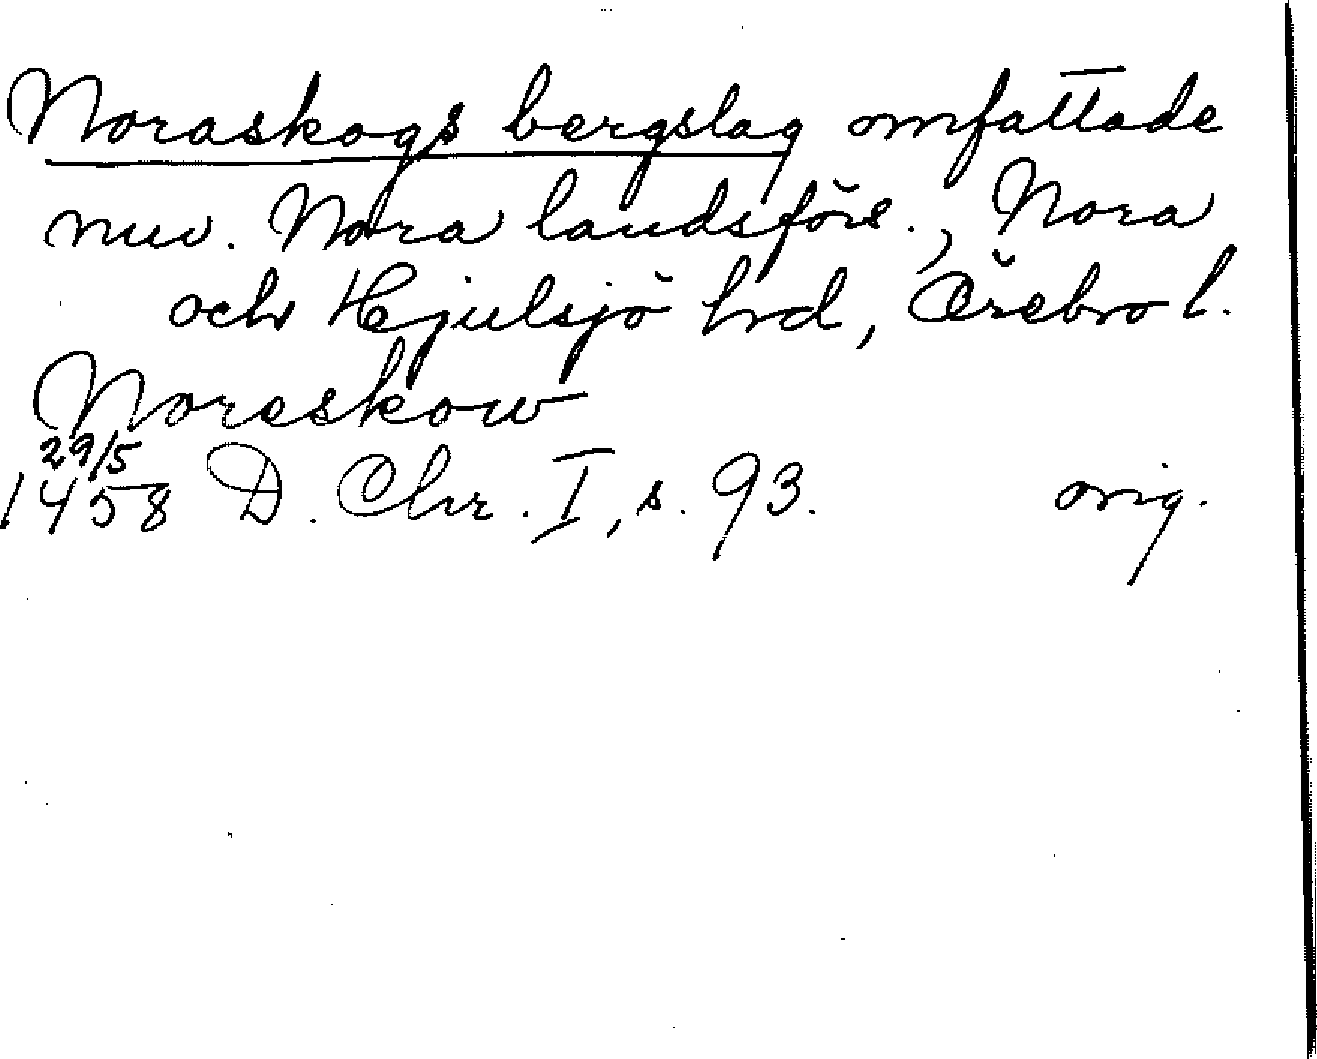 Noraskogs bergslag omfattade
nuv. Nora landsförs., Nora
och Hjulsjö hrd, Örebro l.
Noreskow
29/5
1458 D. Chr. I, s. 93. orig.